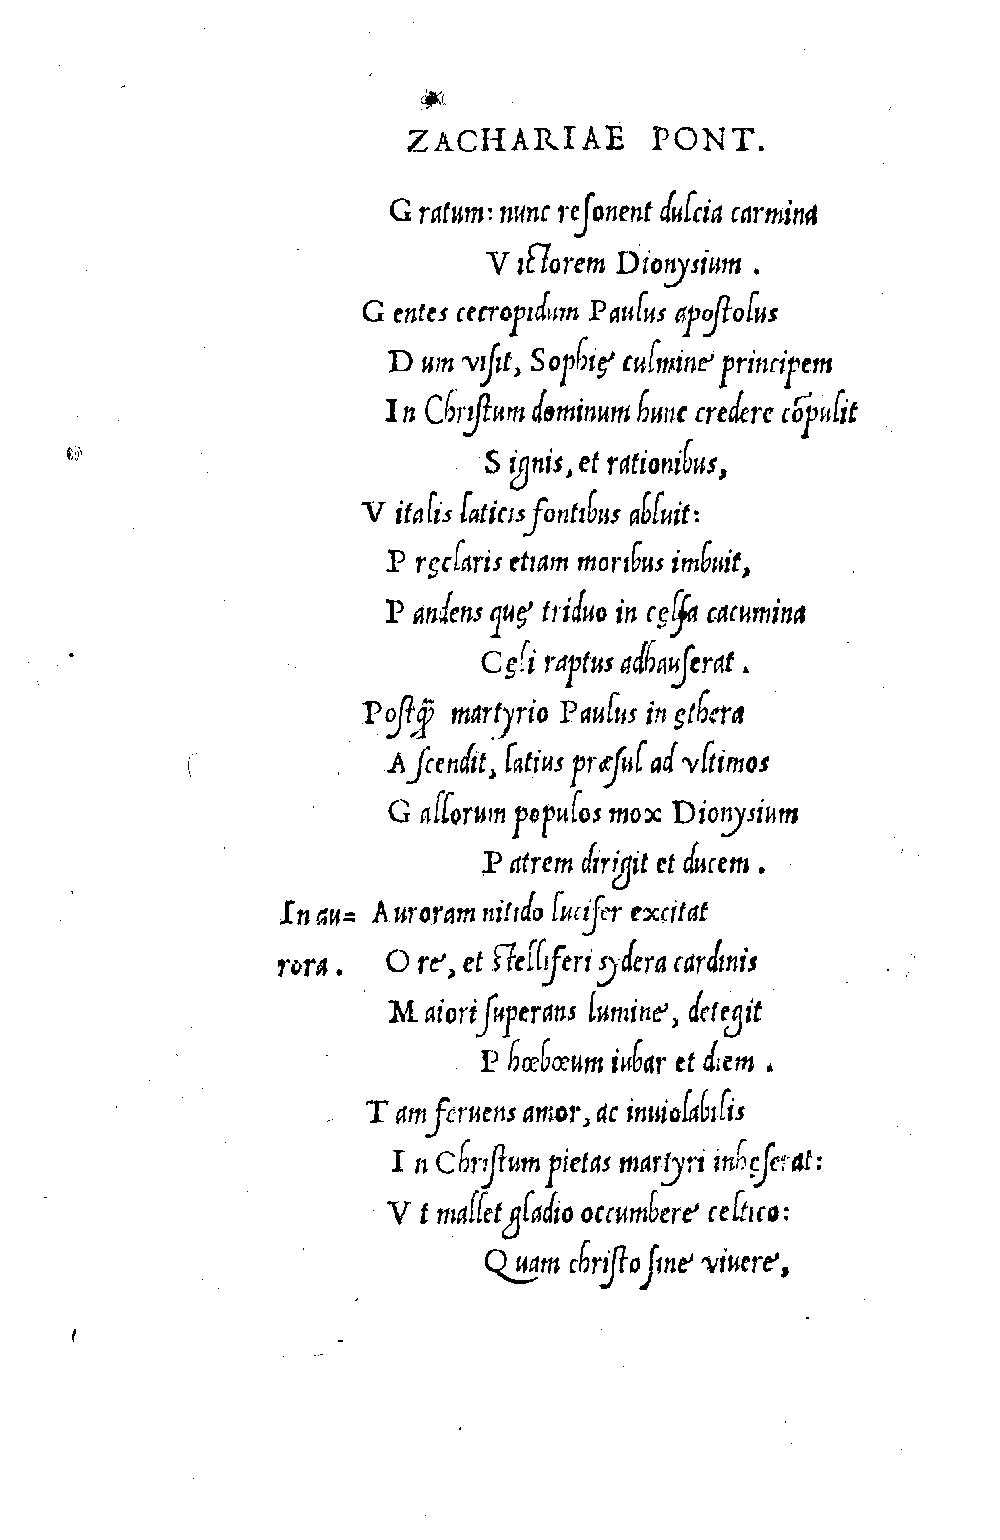 ZACHARIAE PONT.
Gratum: nunc reſonent dulcia carmina
Victorem Dionysium.
Gentes cecropidum Paulus apoſtolus
Dum viſit, Sophię culmine principem
In Chriſtum dominum hunc credere cōpulit
Signis, et rationibus,
Vitalis laticis fontibus abluit:
Pręclaris etiam moribus imbuit,
Pandens quę triduo in cęlſa cacumina
Cęli raptus adhauſerat.
Poſtq̃ martyrio Paulus in ęthera
Aſcendit, latius præſul ad vltimos
Gallorum populos mox Dionysium
Patrem dirigit et ducem.
In au= Auroram nitido lucifer excitat
rora. Ore, et ſtelliferi sydera cardinis
Maiori ſuperans lumine, detegit
Phœbœum iubar et diem.
Tam feruens amor, ac inuiolabilis
In Chriſtum pietas martyri inhęſerat:
Vt mallet gladio occumbere celtico:
Quam chriſto ſine viuere,